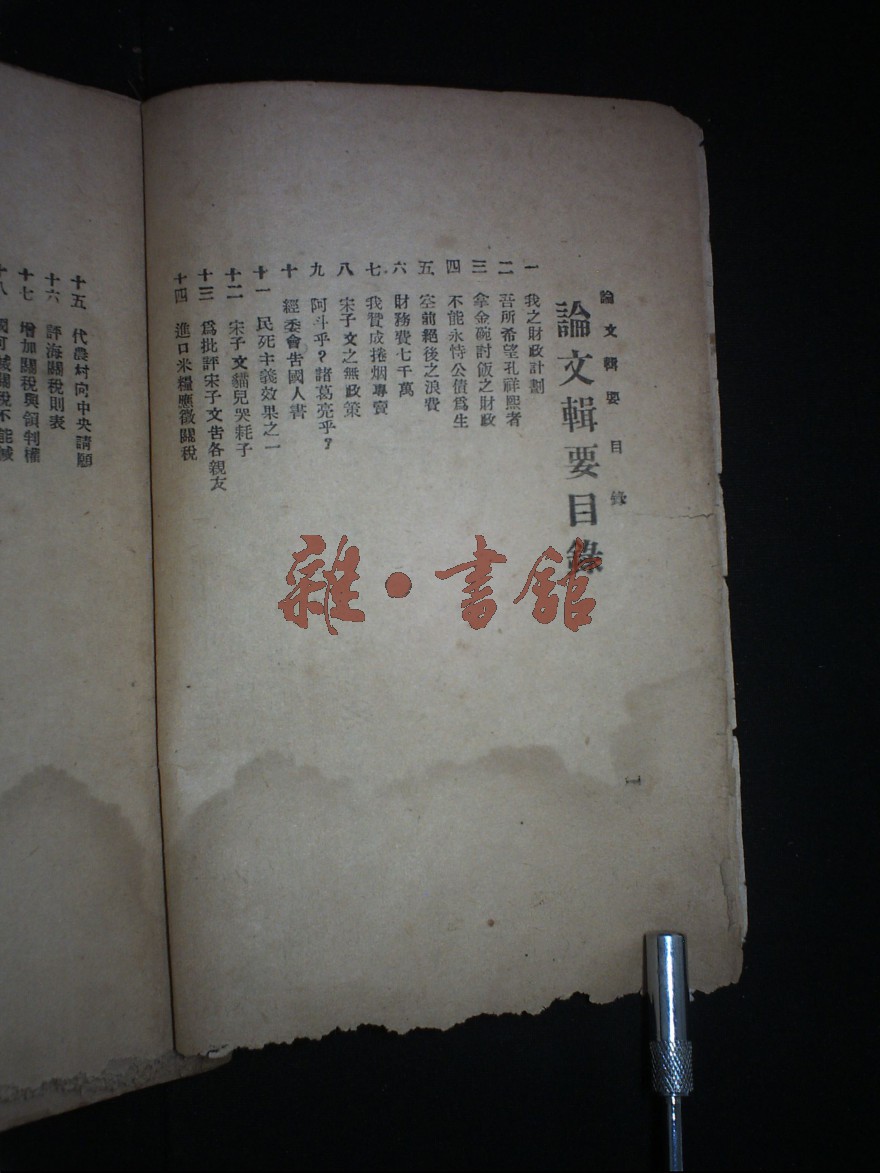 論文輯要目錄
論文輯要目錄
一 我之財政計劃
二 吾所希望孔祥熙者
三 拿金碗討飯之財政
四 不能永恃公債爲生
五 空前絕後之浪費
六 財務費七千萬
七 我贊成捲烟專賣
八 宋子文之無政策
九 阿斗乎？諸葛亮乎？
十 經委會告國人書
十一 民死主義效果之一
十二 宋子文貓兒哭耗子
十三 爲批評宋子文告各親友
十四 進口米糧應徵關稅
一
十五 代農村向中央請願
十六 評海關稅則表
十七 增加關稅與領判權
十八 關稅不能減
雜·書館